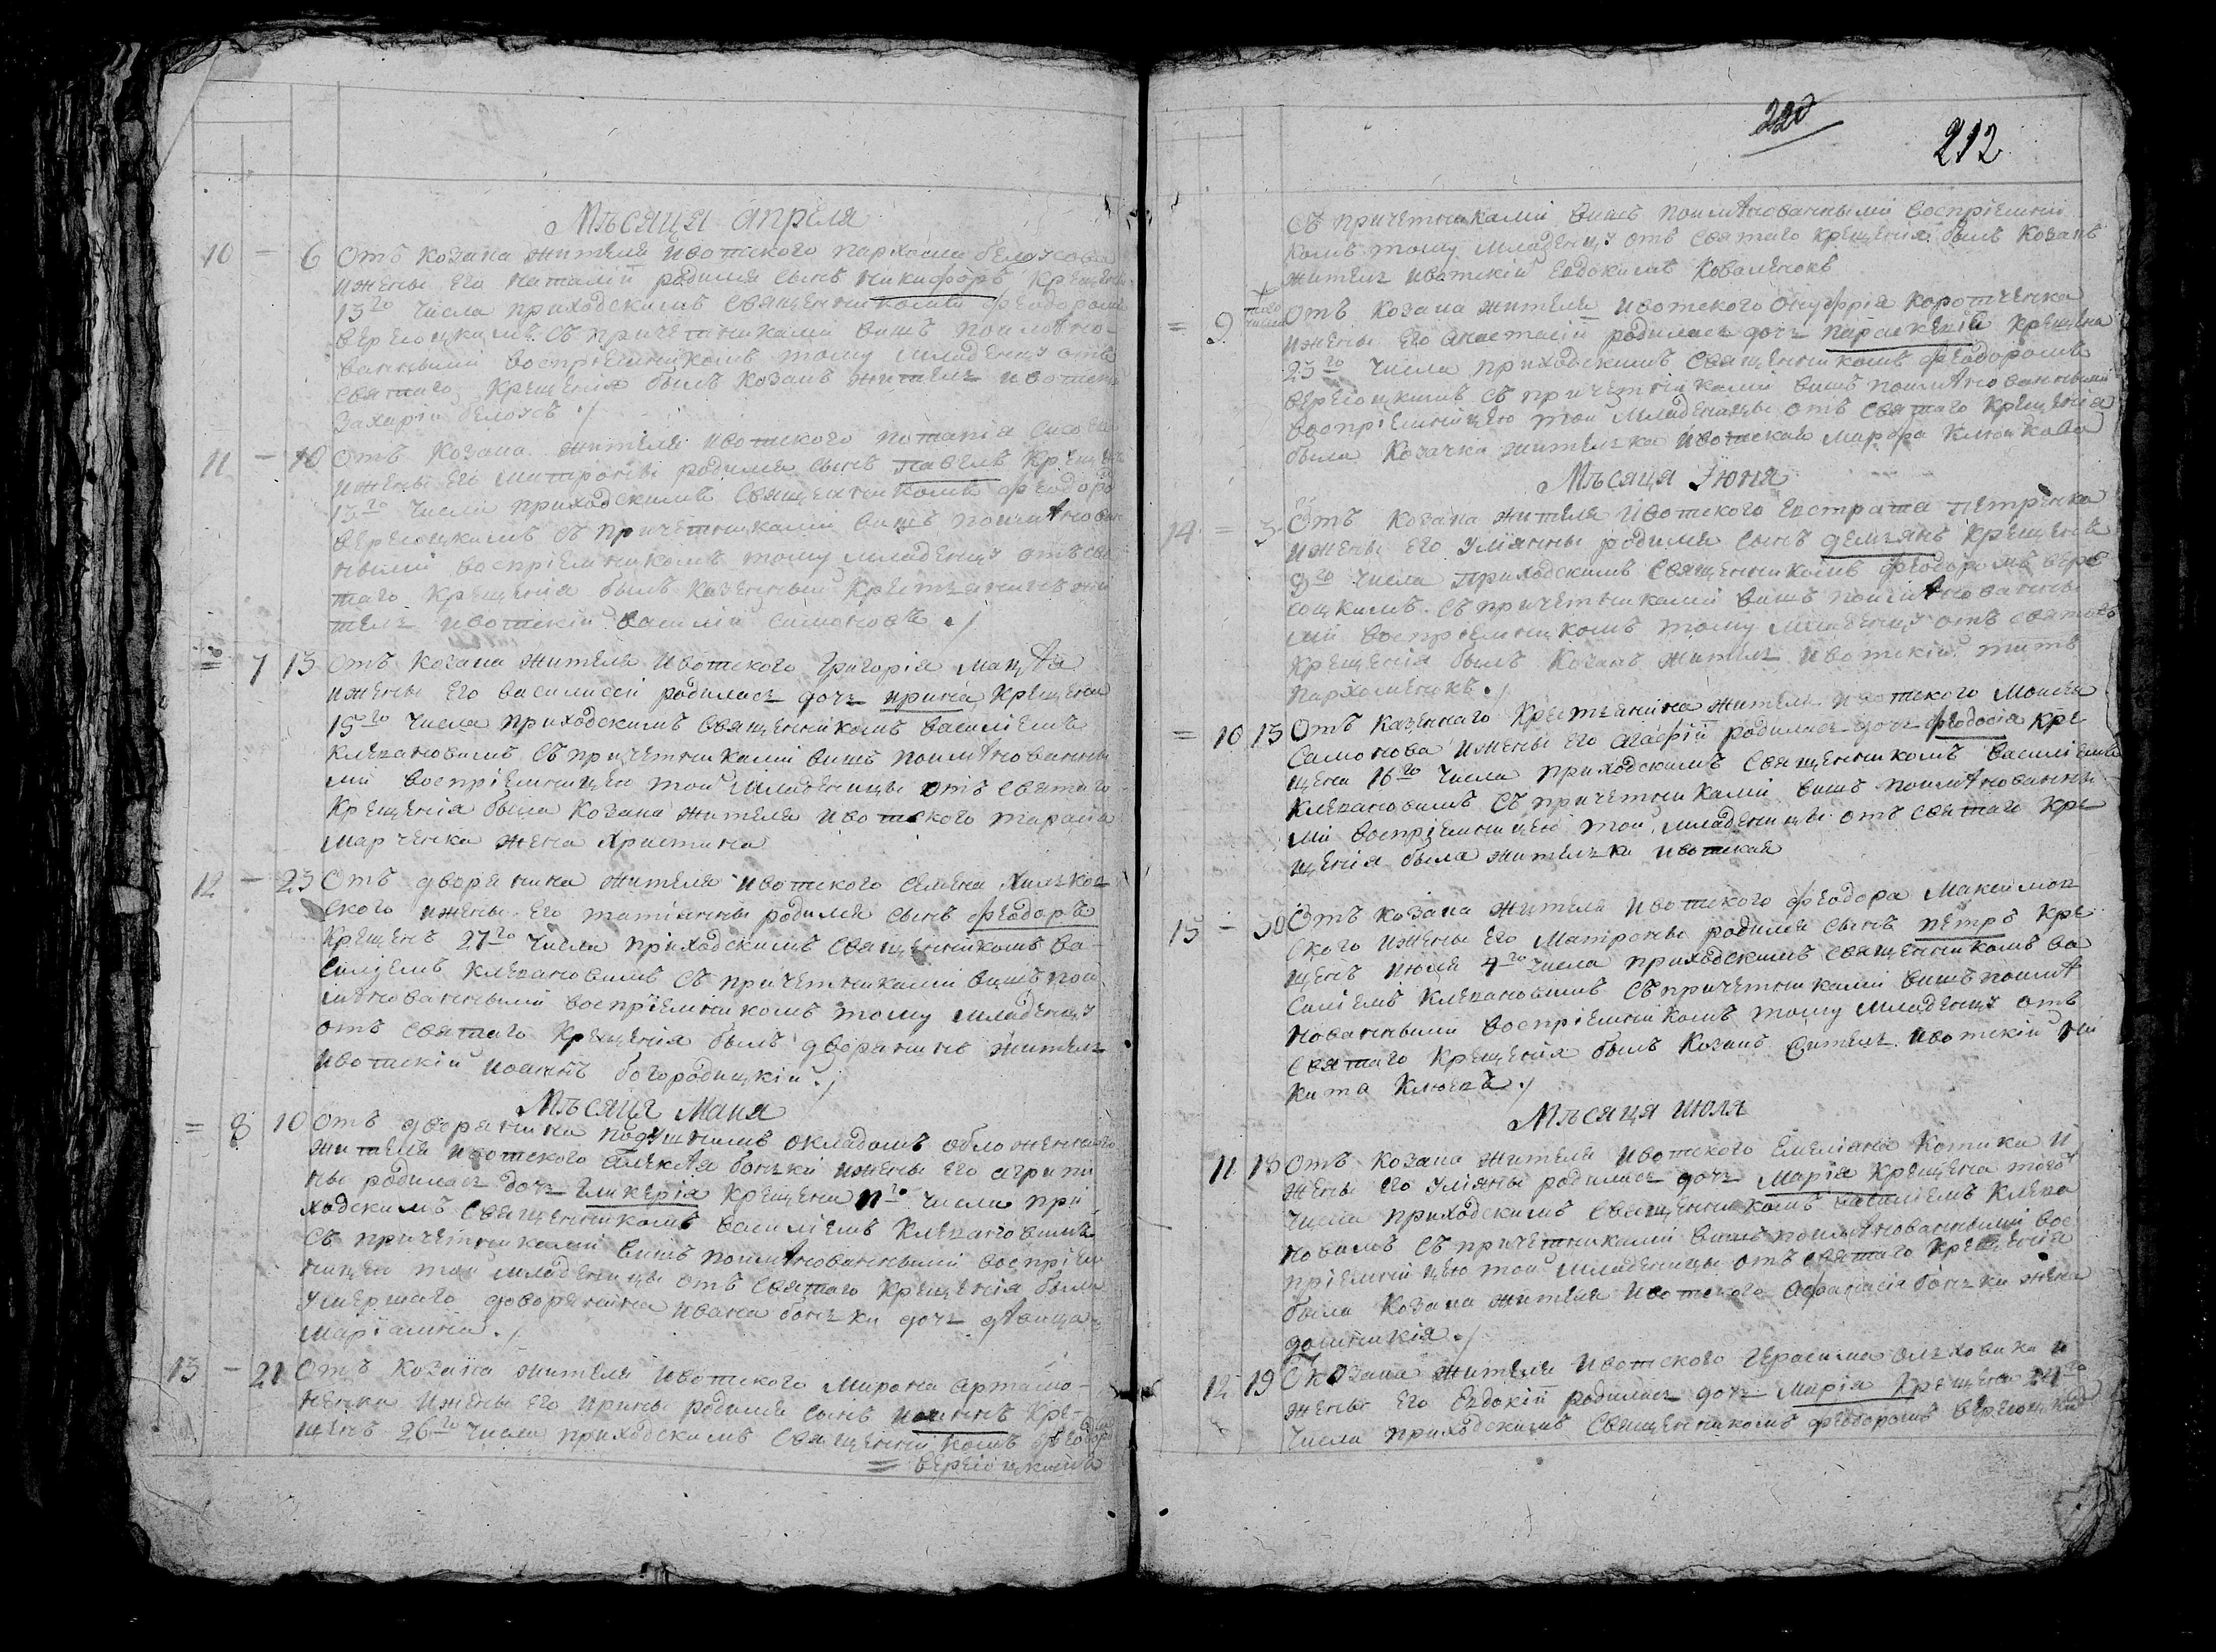 Мѣсяца Апрѣля
10 — 6 Отъ козака жителя Ивотского Пархома Белоусова
и жены его Наталіи родился сынъ Никифоръ крещенъ
13го числа приходскимъ священникомъ Феодоромъ
Верегоцкимъ съ причетниками вишъ поимѣно-
ванными воспріемникомъ тому младенцу отъ
святаго крещенія былъ козакъ житель Ивотскій
Захарій Белоусъ
11 — 10 Отъ козака жителя Ивотского Потапія
и жены его Матроны родился сынъ Павелъ крещенъ
13го числа приходскимъ священникомъ Феодоро
Верегоцкимъ съ причетниками вишъ поимѣнован
ными воспріемникомъ тому младенцу отъ свя
таго крещенія былъ казенный крестьянинъ жи
тель Ивотскій Василій Самоновъ
= 7 13 Отъ козака жителя Ивотского Григорія
и жены его Василисси родилась дочь Ирина крещена
15го числа приходскимъ священникомъ Василіемъ
Клепановимъ съ причетниками вишъ поимѣнованны
ми воспріемницею той младеницы отъ святаго
крещенія была козака жителя Ивотского Тараса
Марченка жена Христина
12 — 23 Отъ дворянина жителя Ивотского Семена Хильков
ского и жены его Татіанны родился сынъ Феодоръ
крещенъ 27го числа приходскимъ священникомъ Ва-
силіемъ Клепановимъ съ причетниками вишъ пои
мѣнованными воспріемникомъ тому младенцу
отъ святаго крещенія былъ дворянинъ житель
Ивотскій Иоаннъ Богородицкій
Мѣсяца Маия
= 8 10 Отъ дворянина подушнимъ окладомъ обложеннаго
жителя Ивотского Алексѣя Бонзки и жены его Агрипи
ны родилась дочь Гликерія крещена 11го числа при
ходскимъ священникомъ Василіемъ Клепановимъ
съ причетниками вишъ поимѣнованными воспріем
ницею той младеницы отъ святаго крещенія была
умершаго дворянина Ивана Бонзки дочь дѣвица
Маріамна
13 — 21 Отъ козака жителя Ивотского Мирона Артамо-
ненка и жены его Ирины родился сынъ Иоаннъ кре-
щенъ 26го числа приходскимъ священникомъ Феодоро
= Верегоцкимъ
220
212
съ причетниками вишъ поимѣнованными воспріемни
комъ тому младенцу отъ святаго крещенія былъ козакъ
житель Ивотскій Евдокимъ Коваленокъ
= 9 того числа Отъ козака жителя Ивотского Онуфрія Коротченка
и жены его Анастасіи родилась дочь Параскевія крещена
25го числа приходскимъ священникомъ Феодоромъ
Верегоцкимъ съ причетниками вишъ поимѣнованными
воспріемницею той младеницы отъ святаго крещенія
была козачка жителька Ивотская Марфа Клюйкова
Мѣсяца Іюня
14 = 3 Отъ козака жителя Ивотского Евстрата Петренка
и жены его Уліянны родился сынъ Демьянъ крещенъ
9го числа приходскимъ священникомъ Феодоромъ Вере
гоцкимъ съ причетниками вишъ поимѣнованны
ми воспріемникомъ тому младенцу отъ святого
крещенія былъ козакъ житель Ивотскій Титъ
Пархоменокъ
= 10 15 Отъ казеннаго крестьянина жителя Ивотского Моисея
Самонова и жены его Агафіи родилась дочь Феодосія кре
щена 16го числа приходскимъ священникомъ Василіемъ
Клепановимъ съ причетниками вишъ поимѣнованны
ми воспріемницею той младеницы отъ святаго кре
щенія была жителька Ивотская
15 — 30 Отъ козака жителя Ивотского Феодора Максимов
ского и жены его Матроны родился сынъ Петръ кре
щенъ июля 4го числа приходскимъ священникомъ Ва
силіемъ Клепановимъ съ причетниками вишъ поимѣ
нованными воспріемникомъ тому младенцу отъ
святаго крещенія былъ козакъ житель Ивотскій Ни
кита Клюевъ
Мѣсяца Июля
11 13 Отъ козака жителя Ивотского Емеліана Котика и
жены его Уліяны родилась дочь Марія крещена того
числа приходскимъ священникомъ Василіемъ Клепа
новимъ съ причетниками вишъ поимѣнованными вос
пріемницею той младеницы отъ святаго крещенія
была козака жителя Ивотского Афанасія Бонзки жена
Домникія
12 19 Отъ козака жителя Ивотского Герасима Ольховика и
жены его Евдокіи родилась дочь Марія крещена 21го
числа приходскимъ священникомъ Феодоромъ Верегоцким